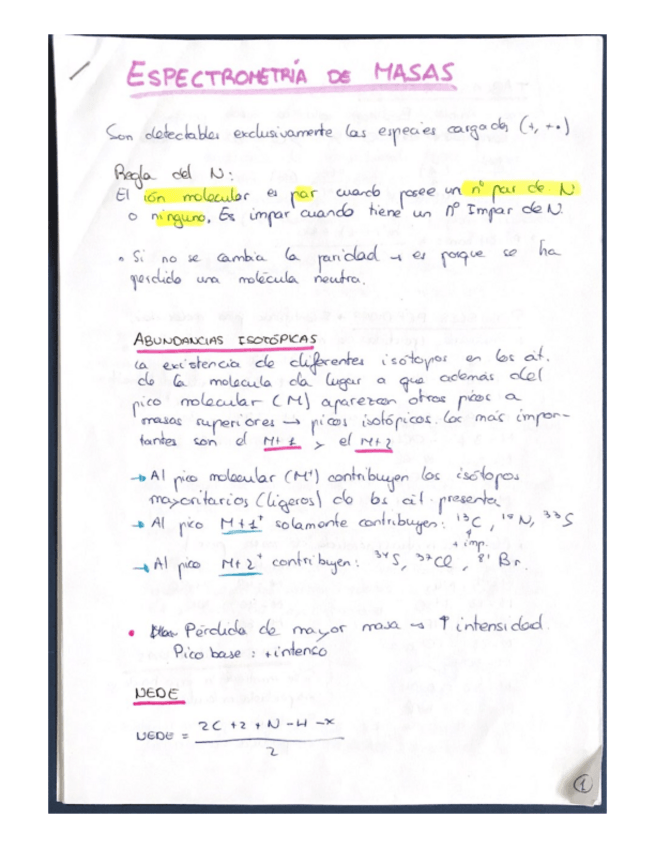 ESPECTROMETRÍA DE MASAS
Son detectables exclusivamente las especies cargadas (+, +•)
Regla del N:
El ión molecular es par cuando posee un nº par de N
o ninguno. Es impar cuando tiene un nº Impar de N.
• Si no se cambia la paridad → es porque se ha
perdido una molécula neutra.
ABUNDANCIAS ISOTÓPICAS
La existencia de diferentes isótopos en los át.
de la molecula da lugar a que además del
pico molecular (M) aparezcan otros picos a
masas superiores → picos isotópicos. Los más impor-
tantes son el M+1 y el M+2
→ Al pico molecular (M⁺) contribuyen los isótopos
mayoritarios (ligeros) de los át. presentes
→ Al pico M+1⁺ solamente contribuyen: ¹³C, ¹⁵N, ³³S
+ imp.
→ Al pico M+2⁺ contribuyen: ³⁴S, ³⁷Cl, ⁸¹Br.
• Pérdida de mayor masa → ↑ intensidad.
Pico base : +intenso
NEDE
NEDE = 2C +2 + N - H - X
2
1